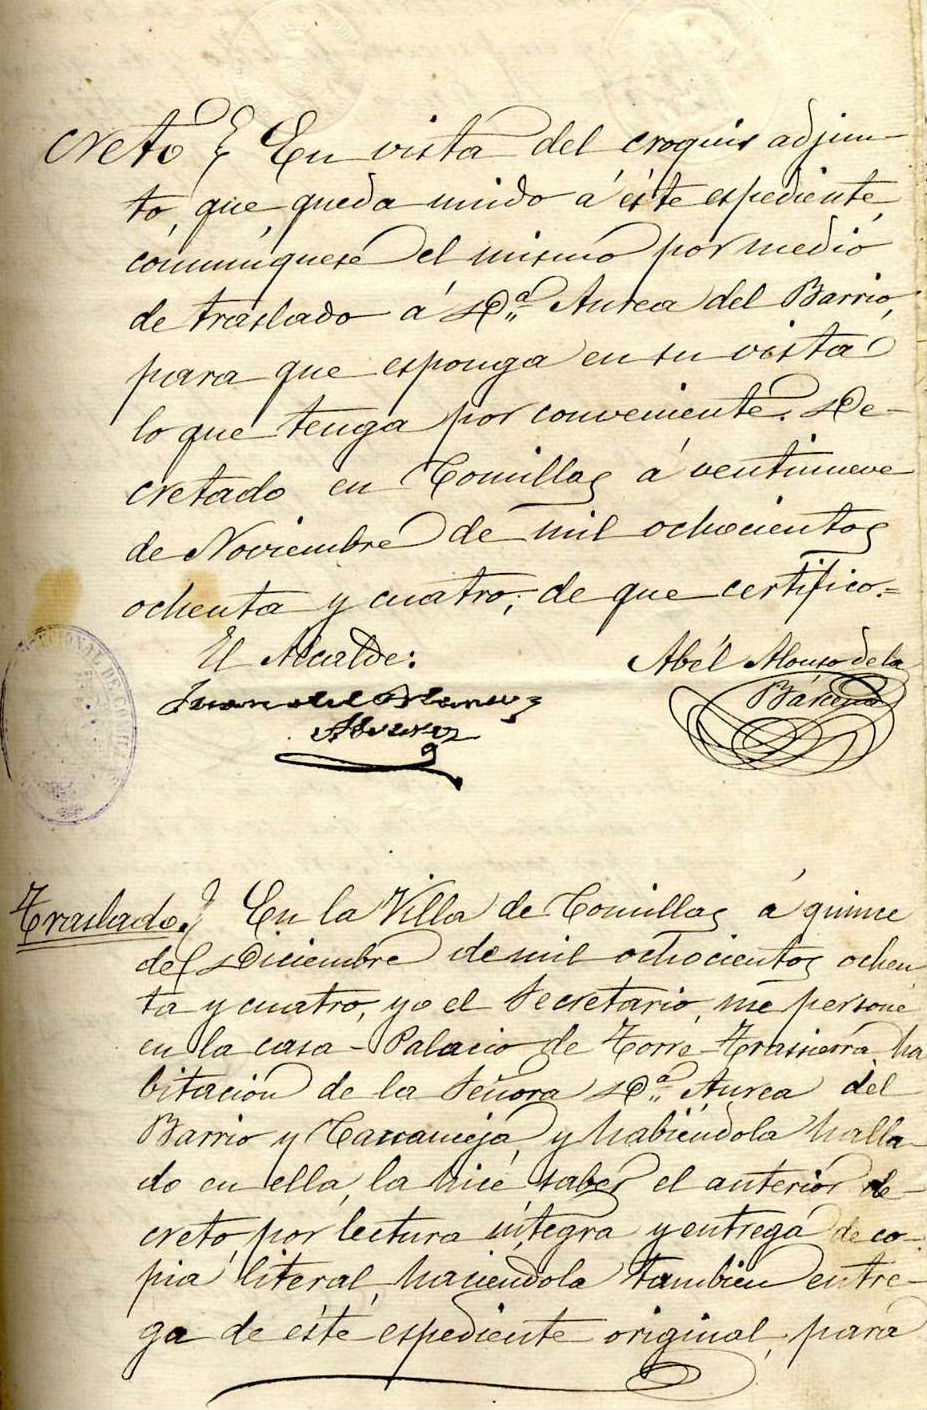 creto } En vista del croquis adjun-
to, que queda unido á éste espediente,
comuníquese el mismo por medio
de traslado á D.ª Aurea del Barrio,
para que esponga en su vista
lo que tenga por conveniente. De-
cretado en Comillas á ventinueve
de Noviembre de mil ochocientos
ochenta y cuatro; de que certifico.=
El Alcalde:
Abél Alonso de la
Juan del
Bárcena
Traslado.} En la Villa de Comillas á quince
de Diciembre de mil ochocientos ochen
ta y cuatro, yo el Secretario, me personé
en la casa-Palacio de Torre-Trassierra ha
bitación de la Señora D.ª Aurea del
Barrio y Carranceja, y habiéndola halla-
do en ella, la hicé saber el anterior de-
creto, por lectura íntegra y entrega de co-
pia literal, haciendola tambien entre-
ga de éste espediente original, para